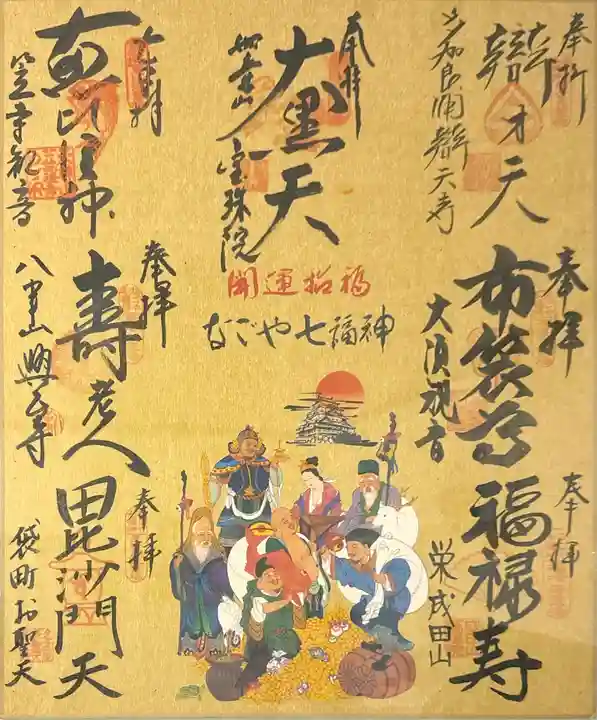 奉拝
辯才天
奉拝
大黒天
宝珠院
奉拝
恵比寿神
笠寺観音
開運招福
なごや七福神
奉拝
布袋尊
大須観音
奉拝
壽老人
八事山興正寺
奉拝
福禄寿
栄成田山
奉拝
毘沙門天
袋町お聖天